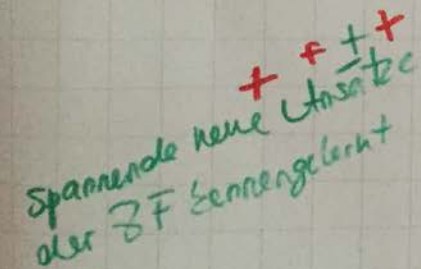 + + + +
Spannende neue Ansätze
der ZF kennengelernt